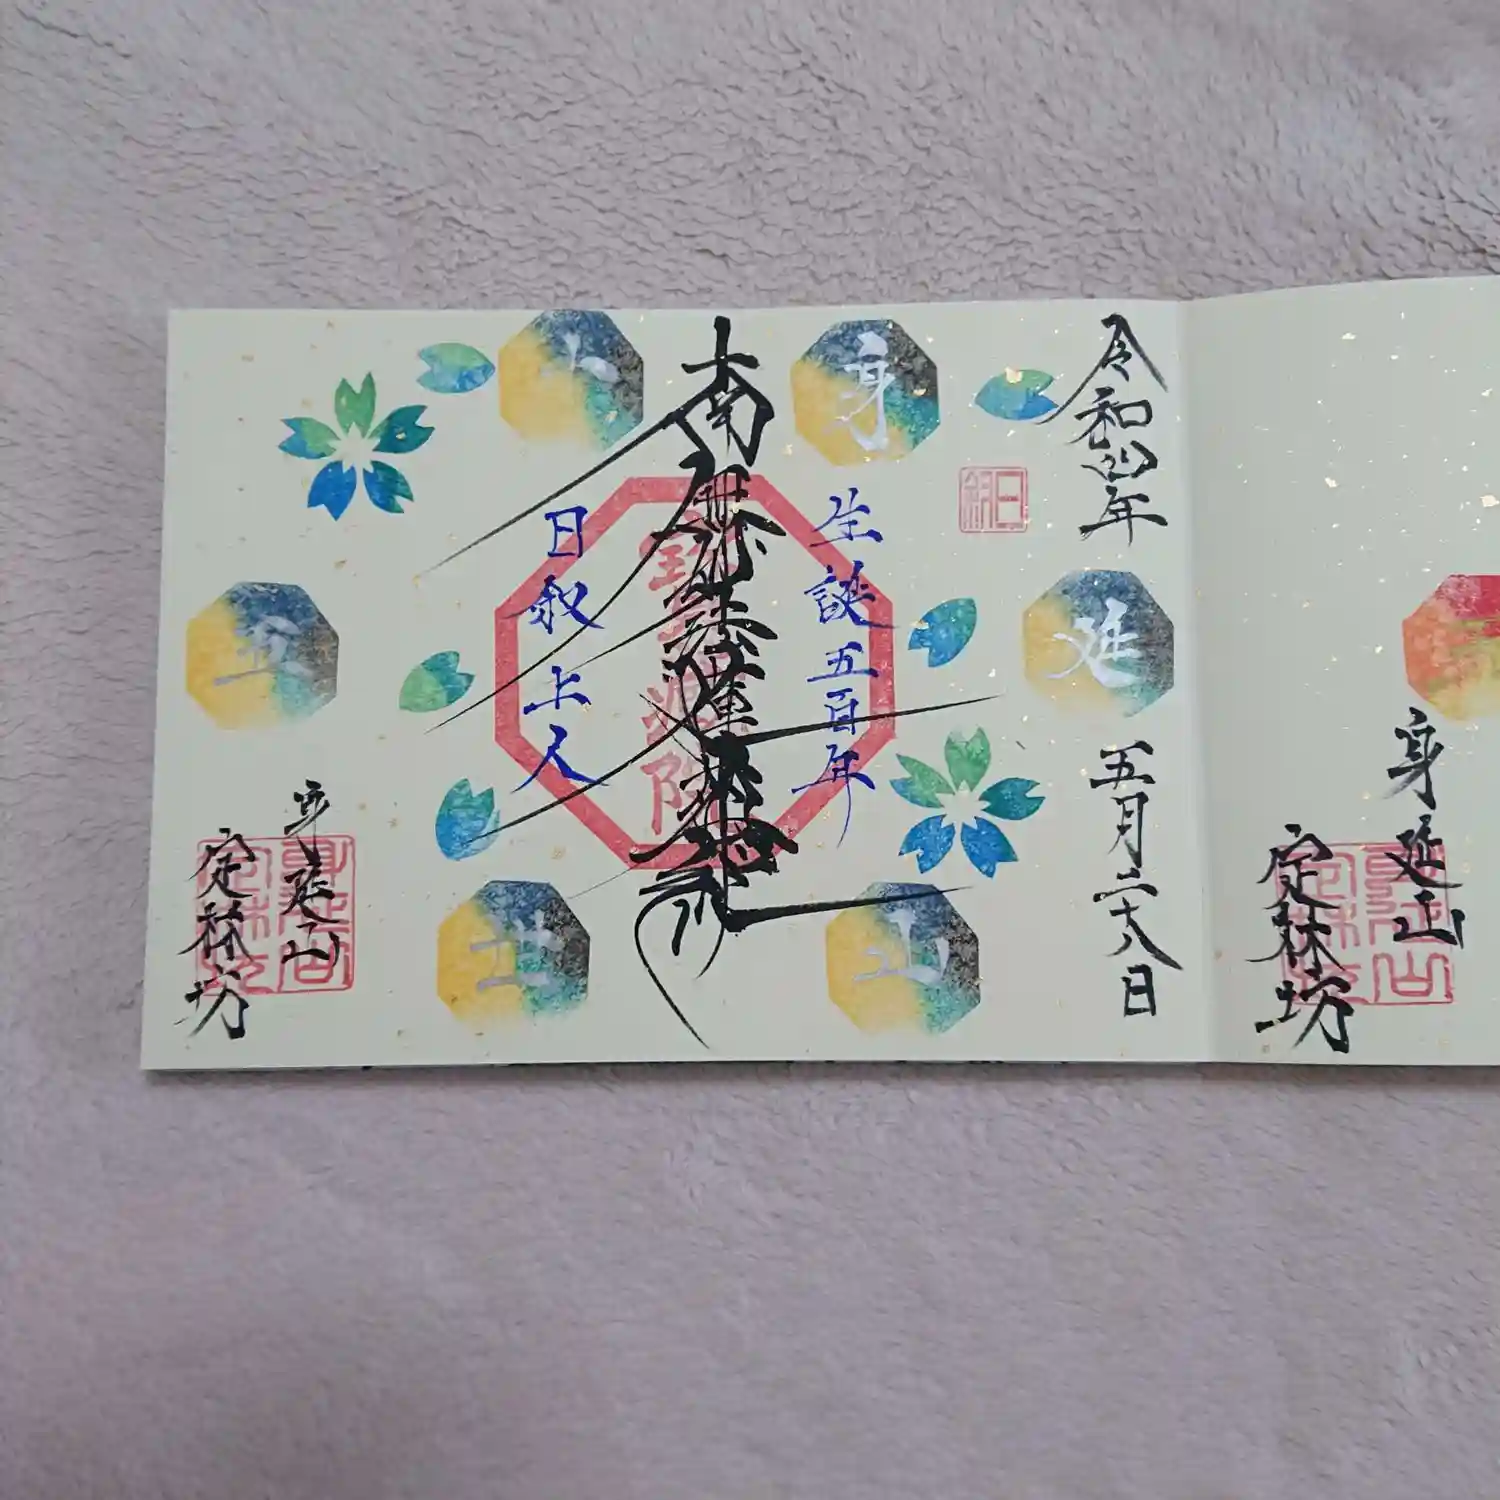 身延山
定林坊
令和四年
五月二十八日
身
延
山
十
五
世
生誕五百年
南無妙法蓮華経
日叙上人
身延山
定林坊